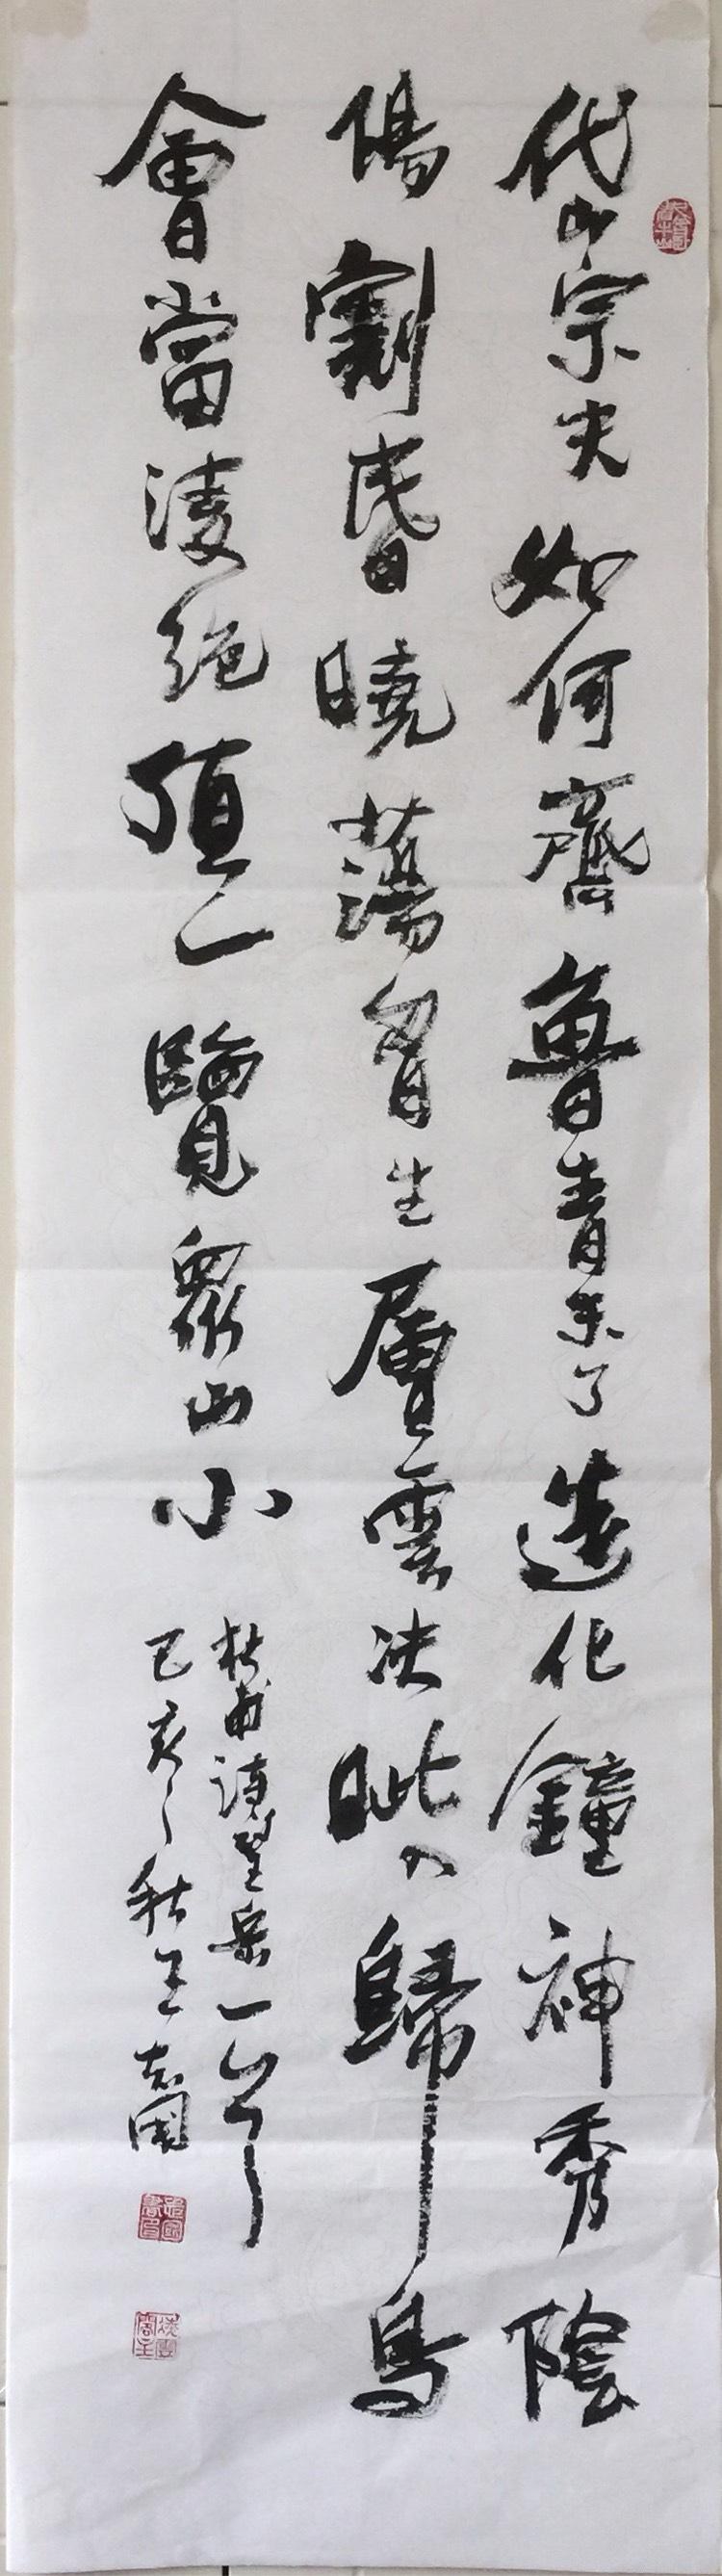 岱宗夫如何齊魯青未了造化鐘神秀陰
陽割昏曉蕩胷生層雲決眦入歸鳥
會當凌絕頂一覽衆山小
杜甫詩望岳一首
己亥之秋王志國